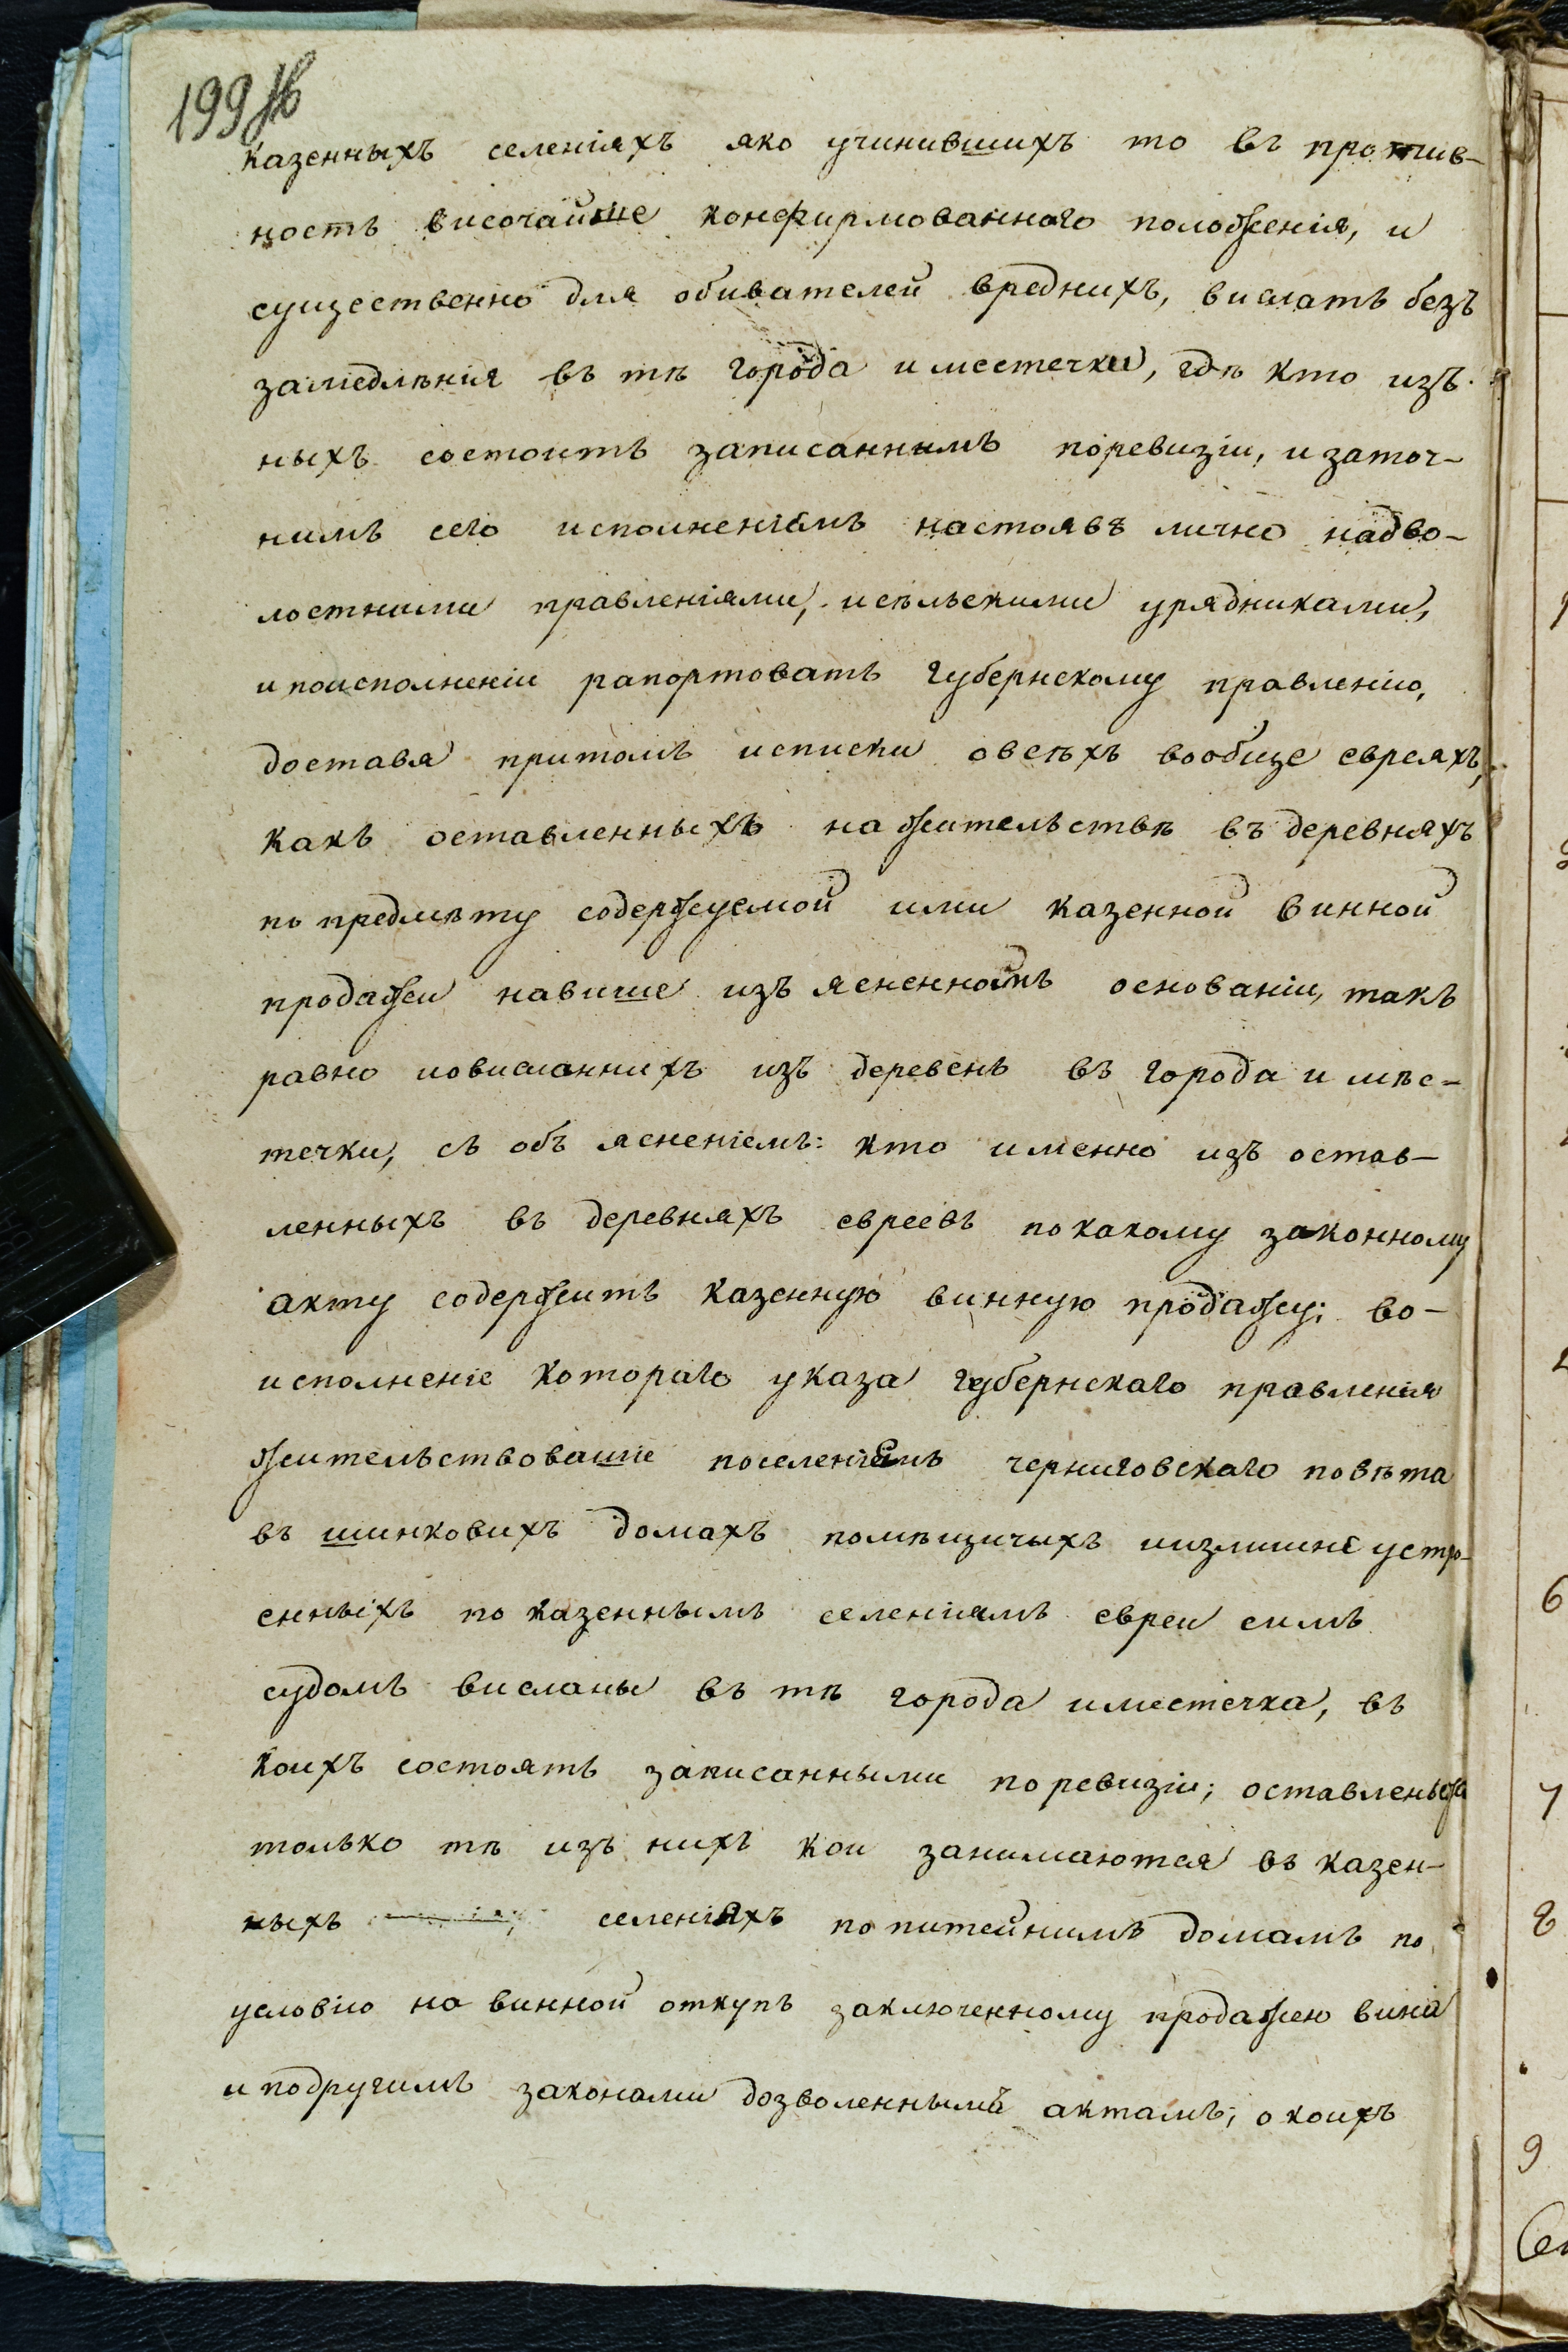 199
казенныхъ селеніяхъ яко учинившихъ то въ против-
ность височайше конфирмованного положенія, и
существенно для обивателей вреднихъ, вислать безъ
замедлѣнія въ тѣ города и местечки, гдѣ кто изъ
ныхъ состоитъ записаннымъ поревизіи, и заточ-
нимъ сего исполненіемъ настоявъ лично надво-
лостними правленіями, исѣльскими урядниками,
и поисполненіи рапортовать губернскому правленію,
доставя притомъ исписки овсѣхъ вообще евреяхъ,
какъ оставленныхъ на жительствѣ въ деревняхъ
по предмѣту содержуемой ими казенной винной
продажи навише изъ ясненномъ основаніи, такъ
равно иовисланнихъ изъ деревень въ города и мѣс-
течки, съ объ ясненіемъ: кто именно изъ остав-
ленныхъ въ деревняхъ евреевъ покакому законному
акту содержитъ казенную винную продажу; во-
исполненіе котораго указа губернскаго правленія
жительствовашіе поселеніямъ черниговскаго повѣта
въ шинковихъ домахъ помѣщичыхъ иизлишне устро-
енныхъ по казеннымъ селеніямъ евреи симъ
судомъ висланы въ тѣ города иместечка, въ
коихъ состоятъ записанными по ревизіи; оставлены жъ
только тѣ изъ нихъ кои занимаются въ казен-
ныхъ селеніяхъ по питейнимъ домамъ по
условію на винной откупъ заключенному продажею вина
и подругимъ законами дозволеннымъ актамъ; о коихъ